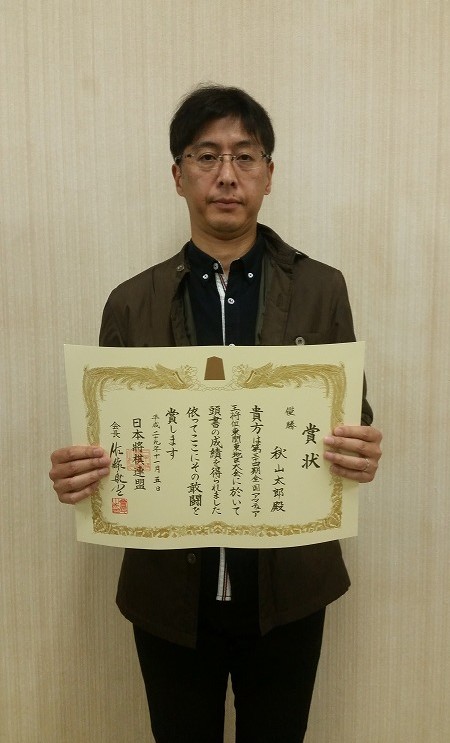 賞状
優勝
秋山太郎殿
貴方は第二十四期全国アマチュア
王将位東関東地区大会に於いて
頭書の成績を得られました
依ってここにその敢闘を
賞します
平成二十九年十一月五日
日本将棋連盟
会長 佐藤康光